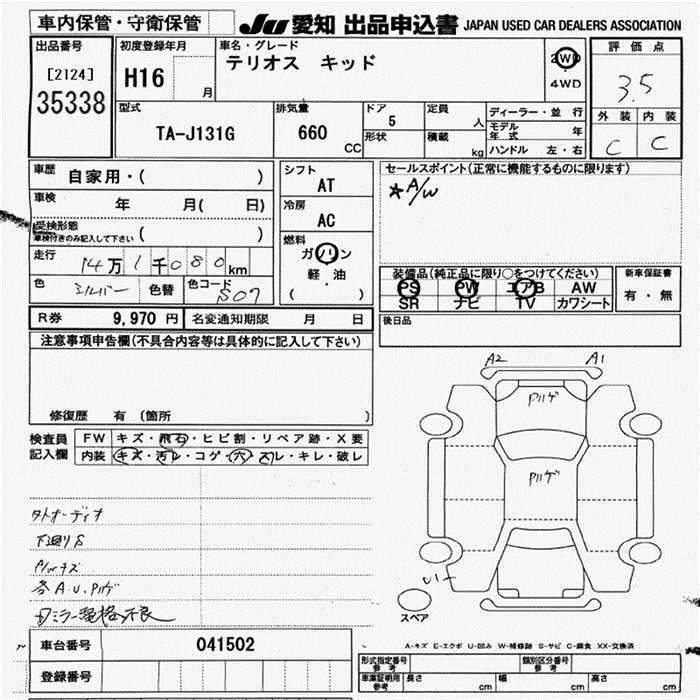 車内保管・守衛保管
JU 愛知 出品申込書 JAPAN USED CAR DEALERS ASSOCIATION
出品番号
[2124]
35338
初度登録年月
H16 月
車名・グレード
テリオス キッド
2WD
4WD
評価点
3.5
外装 内装
C C
型式
TA-J131G
排気量
660 CC
ドア
5
形状
定員
人
積載
kg
ディーラー・並行
モデル年式 年
ハンドル 左・右
車歴 自家用・( )
車検 年 月( 日)
受検形態
車検付きのみ記入して下さい ( )
走行 14万1千080km
色 シルバー 色替 色コード S07
シフト
AT
冷房
AC
燃料
ガソリン
軽・油
( )
セールスポイント(正常に機能するものに限ります)
★A/W
装備品(純正品に限り○をつけてください)
PS PW エアB AW
SR ナビ TV カワシート
新車保証書
有・無
R券 9,970円 名変通知期限 月 日
後日品
注意事項申告欄(不具合内容等は具体的に記入して下さい)
修復歴 有(箇所 )
検査員記入欄
FW キズ・飛石・ヒビ割・リペア跡・X要
内装 キズ・汚レ・コゲ・穴・スレ・キレ・破レ
タトオーディオ
下廻りS
A/Wキズ
各A.U.Pハゲ
Dミラー電格不良
A2 A1
Pハゲ
Pハゲ
U1
スペア
A-キズ E-エクボ U-凹み W-補修跡 S-サビ C-腐食 XX-交換済
車台番号 041502
登録番号
形式指定番号 参考
類別区分番号 参考
車庫証明用 参考 長さ cm 幅 cm 高さ cm